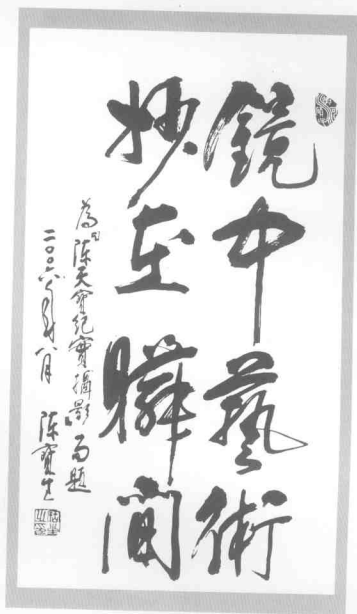 鏡中藝術
妙在瞬間
為《陳天寶紀實攝影》而題
二〇〇六年八月 陳寶生